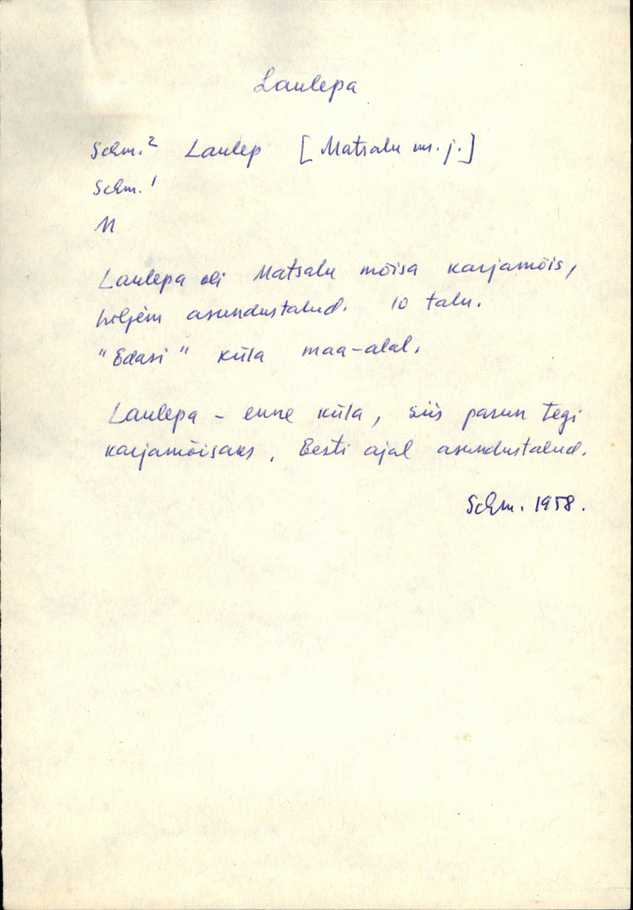 Laulepa
Schm.² Laulep [Matsalu m. j.]
Schm.¹
M
Laulepa oli Matsalu mõisa karjamõis,
hiljem asundustalud. 10 talu.
"Edasi" küla maa-alal.
Laulepa - enne küla, siis parun tegi
karjamõisaks, Eesti ajal asundustalud.
Schm. 1958.